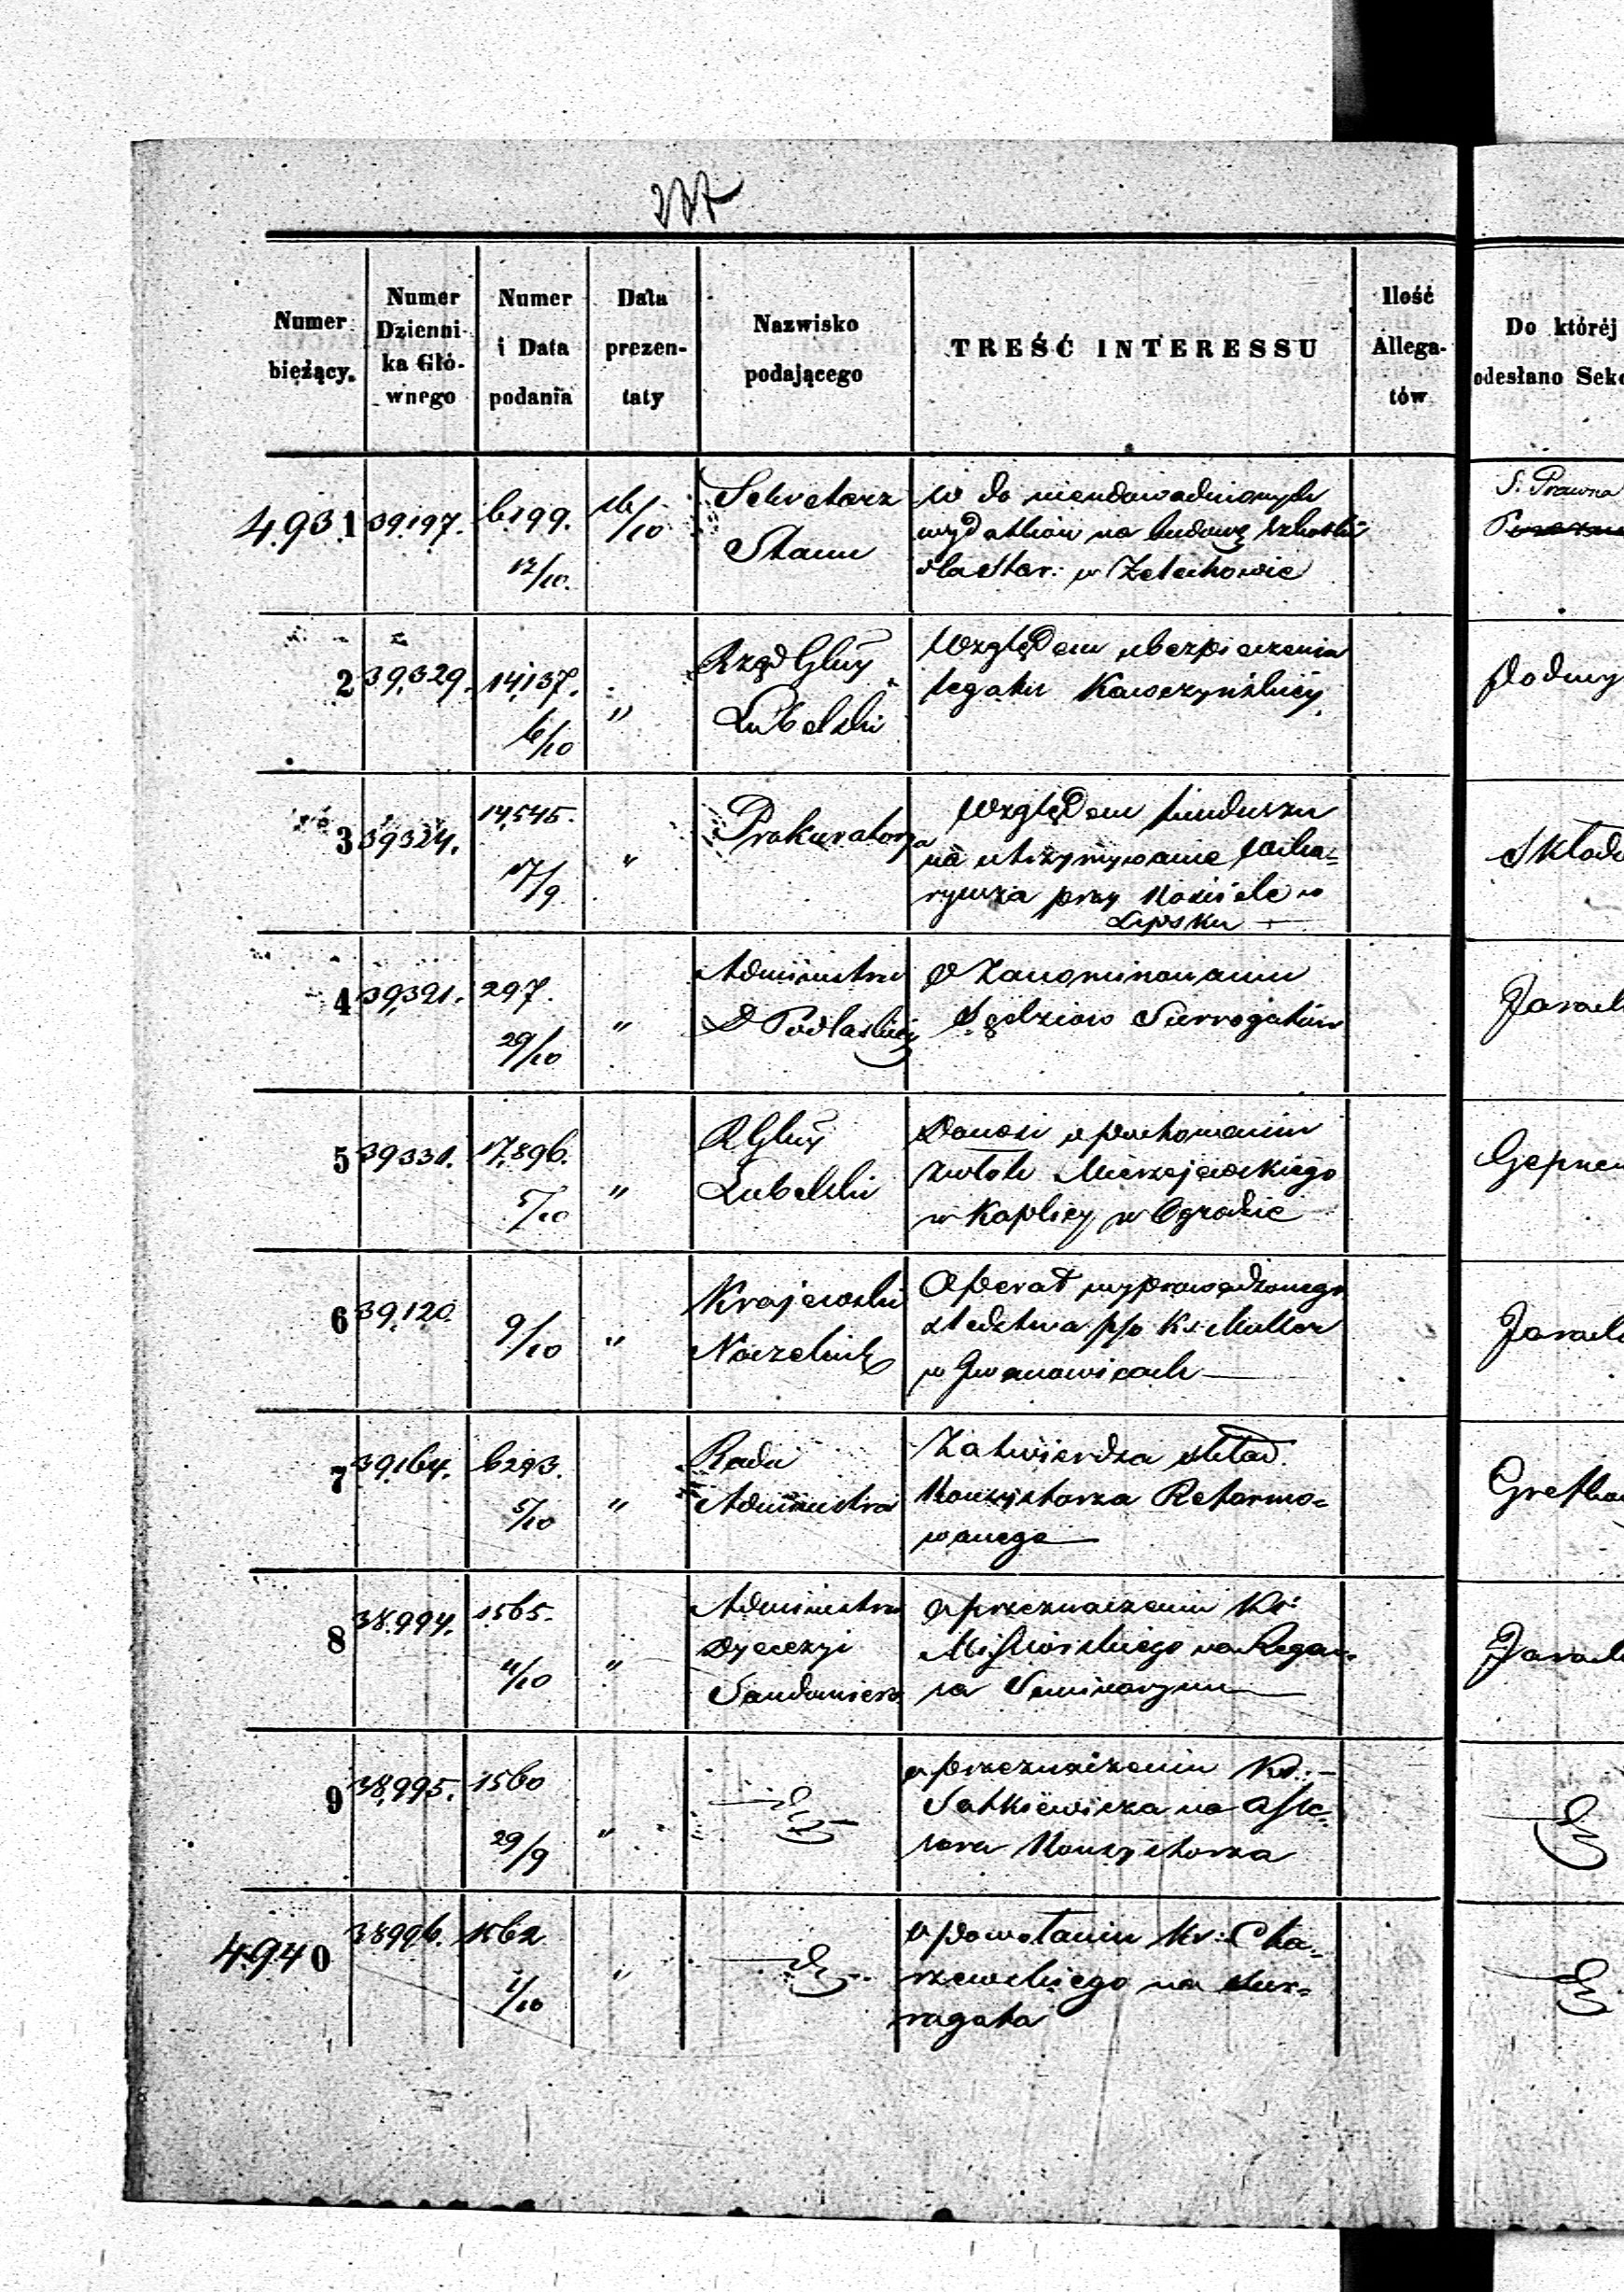 237
Numer bieżący.
Numer Dzienni- ka Głó- wnego
Numer i Data podania
Data prezen- taty
Nazwisko podającego
TREŚĆ INTERESSU
Ilość Allega- tów
Do któréj
odesłano Sek
4,931 39,197. 6199. 12/10. 16/10
Sekretarz
Stanu
w do nieudowadnionych
wydatków na budowę szkółki
dla Star: w Żelechowie
S. Prawna
2 39,329. 14,137. 6/10 "
Rząd Gluy
Lubelski
Względem ubezpieczenia
legatu Kawczyńskiéj
3 39324. 14,545. 17/9. "
Prokuratorya
Względem funduszu
na utrzymywanie Wika=
ryusza przy Kościele w
Lipsku
Składo
4 39,321. 297. 29/10 "
Administra
D Podlaskiéj
O zanominowaniu
Sędziów Surrogatów
5 39331. 17,896. 5/10 "
R Gluy
Lubelski
Donosi o pochowaniu
zwłok Mierzejewskiego
w Kaplicy w Ogrodzie
Gepner
6 39,120. 9/10 "
Krajewski
Naczelnik
Operat wyprowadzonego
śledztwa p/o Ks: Muller
w Iwanowicach
7 39,164. 6293. 5/10 "
Rada
Administra
Zatwierdza skład
Konsystorza Reformo=
wanego
8 38,994. 1565. 4/10 "
Administra
Dyecezyi
Sandomiers
o przeznaczeniu Ks:
na Seminaryum
9 38,995. 1560 29/9 "
o przeznaczeniu Ks:
Satkiewicza na Asse=
sora Konsystorza
4,940 38996. 1562 1/10 "
O powołaniu Ks: Cho=
rzewskiego na Sur=
rogata